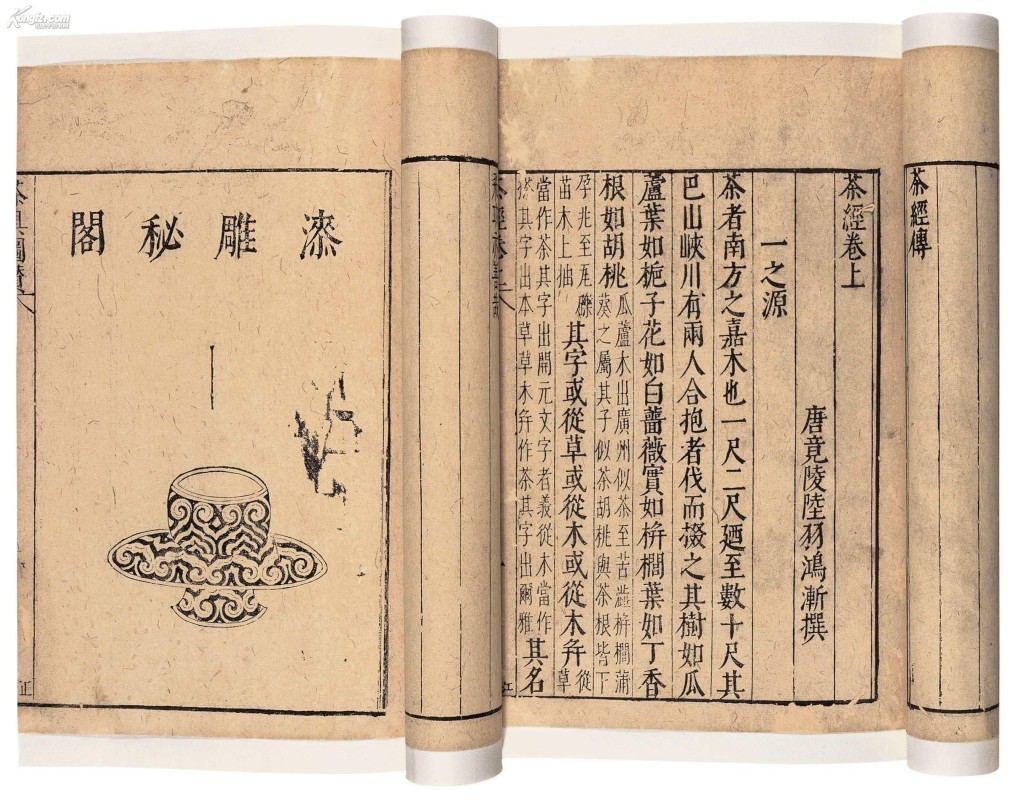 茶經傳
茶經卷上
唐竟陵陸羽鴻漸撰
一之源
茶者南方之嘉木也一尺二尺廼至數十尺其
巴山峽川有兩人合抱者伐而掇之其樹如瓜
蘆葉如梔子花如白薔薇實如栟櫚葉如丁香
根如胡桃瓜蘆木出廣州似茶至苦澁栟櫚蒲葵之屬其子似茶胡桃與茶根皆下
孕兆至瓦礫苗木上抽其字或從草或從木或從木弁從草
當作茶其字出開元文字者義從木當作搽其字出本草草木弁作荼其字出爾雅其名
茶經卷
漆雕秘閣
茶具圖贊
Kongfz.com